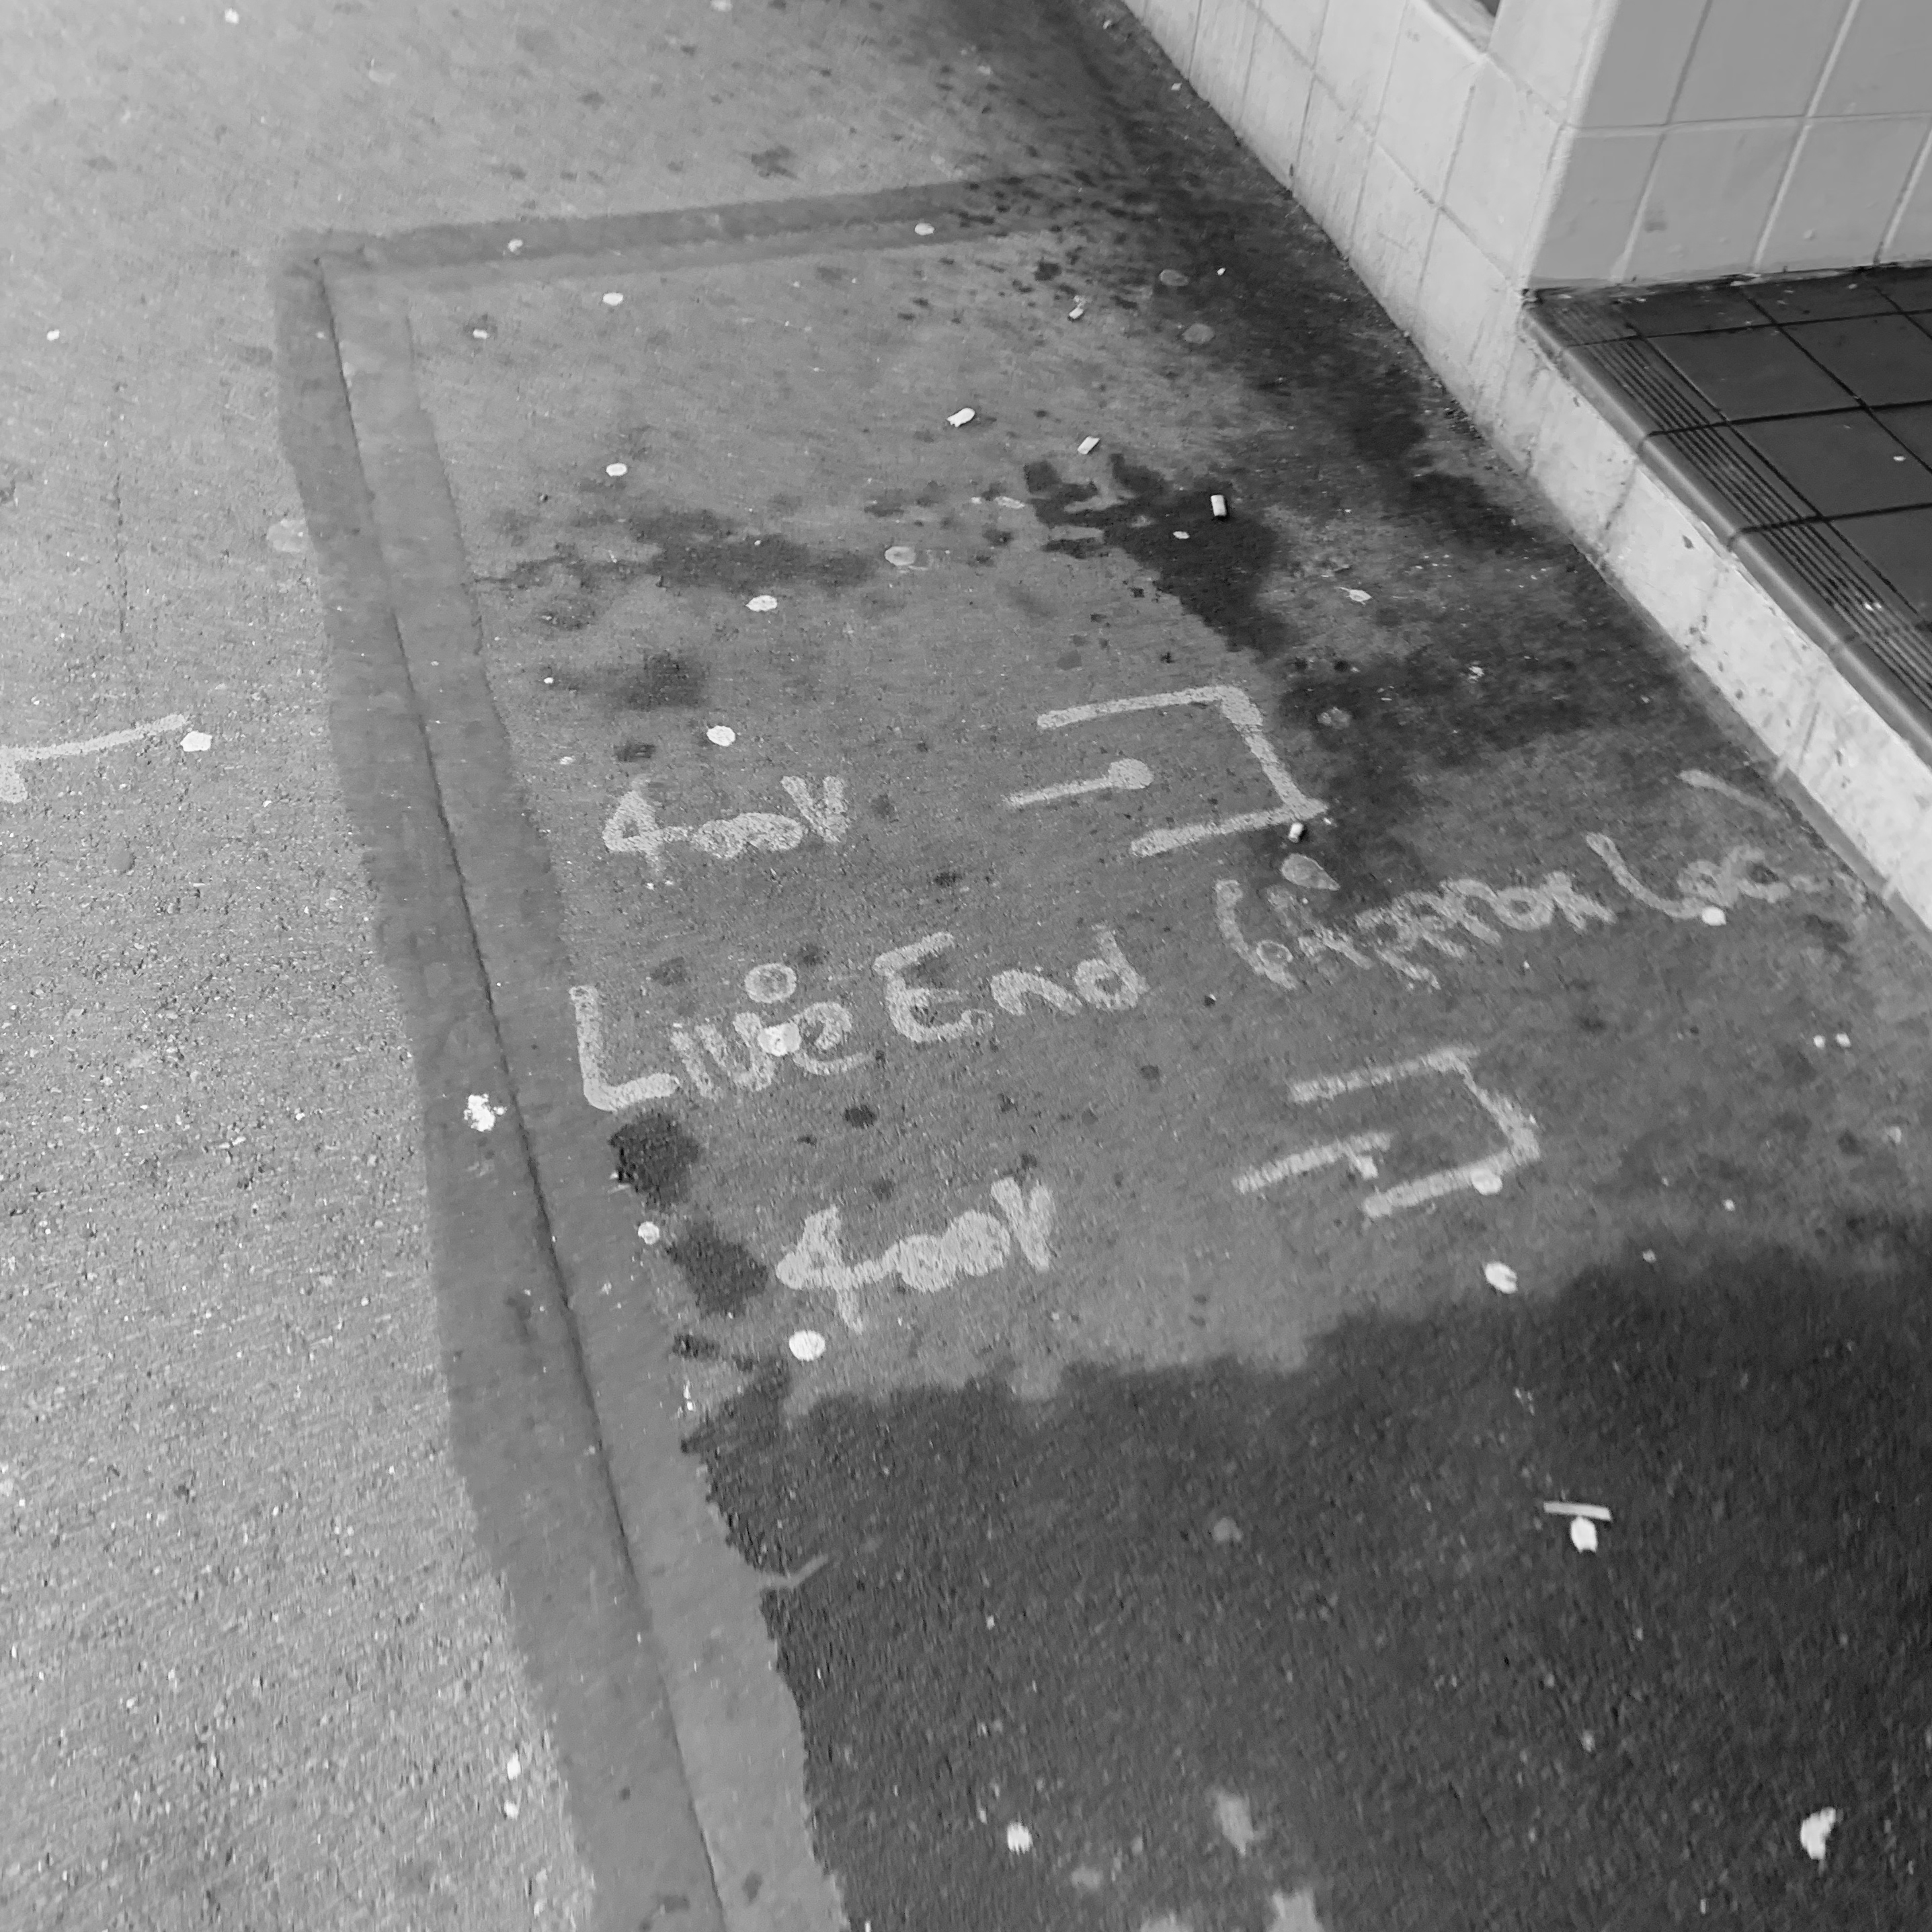 400V
Live End Approx Loc
400V